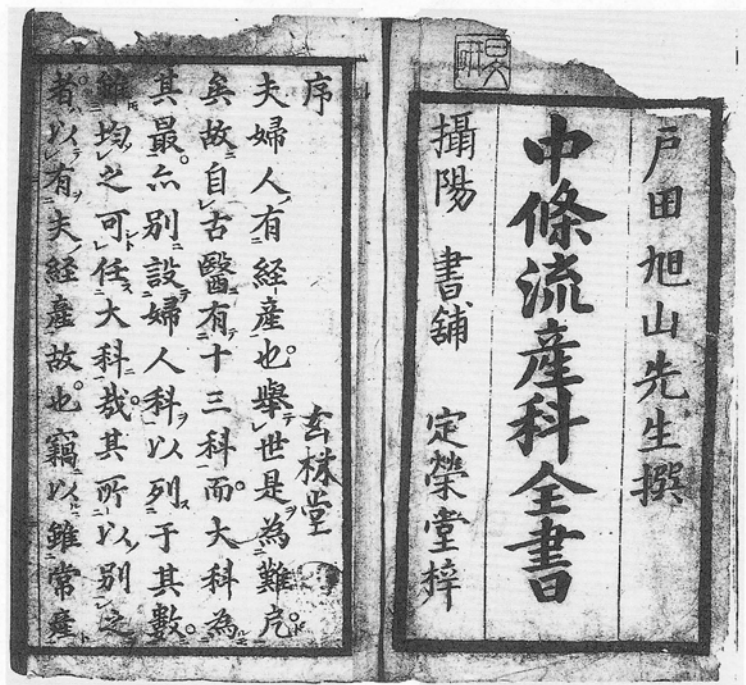 戸田旭山先生撰
中條流産科全書
攝陽 書舗 定榮堂梓
序
夫婦人有経産也。擧世是為難戹。
矣故自古醫有十三科。而大科為
其最。亦別設婦人科以列于其數。
雖均之可任大科哉。其所以別之
者。以有夫経産故也。竊以雖常産